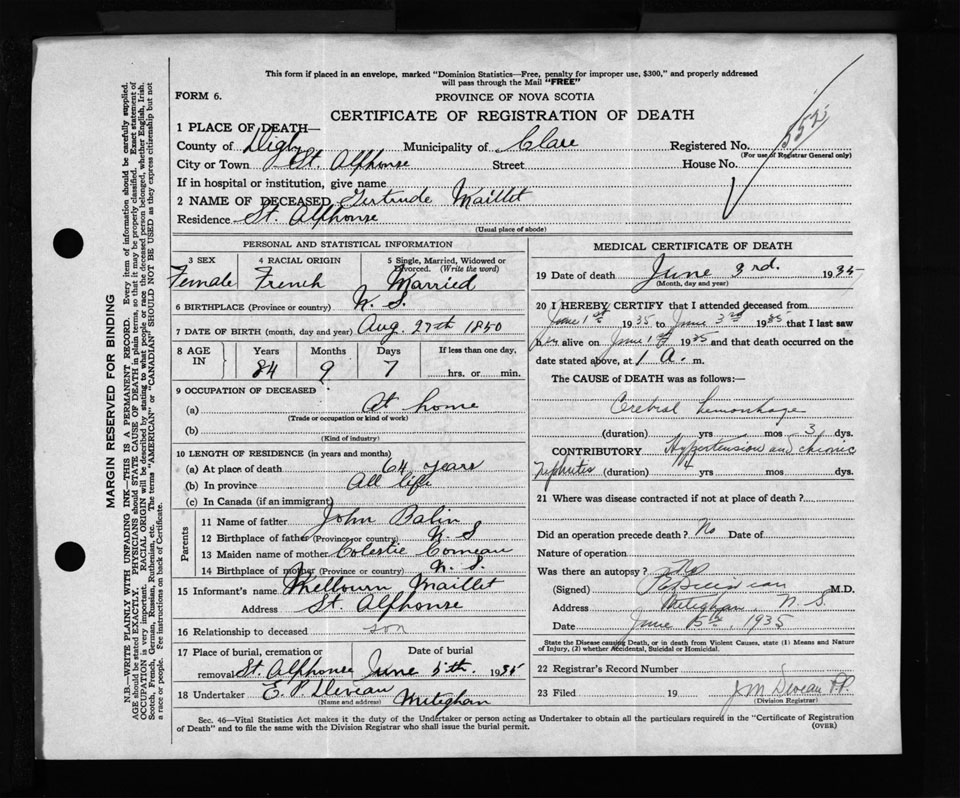 This form if placed in an envelope, marked "Dominion Statistics—Free, penalty for improper use, $300," and properly addressed
will pass through the Mail "FREE"
FORM 6.
PROVINCE OF NOVA SCOTIA
CERTIFICATE OF REGISTRATION OF DEATH
1 PLACE OF DEATH—
County of Digby Municipality of Clare Registered No. 552
(For use of Registrar General only)
City or Town St. Alphonse Street House No.
If in hospital or institution, give name
2 NAME OF DECEASED Gertrude Maillet
Residence St. Alphonse
(Usual place of abode)
PERSONAL AND STATISTICAL INFORMATION
3 SEX 4 RACIAL ORIGIN 5 Single, Married, Widowed or
Divorced. (Write the word)
Female French Married
6 BIRTHPLACE (Province or country) N. S.
7 DATE OF BIRTH (month, day and year) Aug. 27th 1850
8 AGE IN Years Months Days If less than one day,
84 9 7 hrs. or min.
9 OCCUPATION OF DECEASED
(a) At home
(Trade or occupation or kind of work)
(b)
(Kind of industry)
10 LENGTH OF RESIDENCE (in years and months)
(a) At place of death 64 years
(b) In province All life
(c) In Canada (if an immigrant)
Parents
11 Name of father John Balin
12 Birthplace of father (Province or country) N. S
13 Maiden name of mother Colestie Comeau
14 Birthplace of mother (Province or country) N. S.
15 Informant's name Melbourn Maillet
Address St. Alphonse
16 Relationship to deceased son
17 Place of burial, cremation or Date of burial
removal St. Alphonse June 5th. 1935
18 Undertaker E. P. Deveau Meteghan
(Name and address)
MEDICAL CERTIFICATE OF DEATH
19 Date of death June 3rd. 1935
(Month, day and year)
20 I HEREBY CERTIFY that I attended deceased from
June 1st 1935 to June 3rd 1935 that I last saw
her alive on June 1st 1935 and that death occurred on the
date stated above, at 1 A. m.
The CAUSE of DEATH was as follows:—
Cerebral hemorrhage
(duration) yrs mos 3 dys.
CONTRIBUTORY Hypertension and chronic
nephritis (duration) 4 yrs mos dys.
21 Where was disease contracted if not at place of death?
Did an operation precede death? No Date of
Nature of operation
Was there an autopsy? No
(Signed) M.D.
Address Meteghan, N. S.
Date June 15th, 1935
State the Disease causing Death, or in death from Violent Causes, state (1) Means and Nature
of Injury, (2) whether Accidental, Suicidal or Homicidal.
22 Registrar's Record Number
23 Filed 19 J M Deveau P.P.
(Division Registrar)
Sec. 46—Vital Statistics Act makes it the duty of the Undertaker or person acting as Undertaker to obtain all the particulars required in the "Certificate of Registration
of Death" and to file the same with the Division Registrar who shall issue the burial permit.
(OVER)
MARGIN RESERVED FOR BINDING
N.B.—WRITE PLAINLY WITH UNFADING INK—THIS IS A PERMANENT RECORD. Every item of information should be carefully supplied.
AGE should be stated EXACTLY. PHYSICIANS should STATE CAUSE OF DEATH in plain terms, so that it may be properly classified. Exact statement of
OCCUPATION is very important. RACIAL ORIGIN will be described by stating to what people or race the deceased person belonged, whether English, Irish,
Scotch, French, German, Russian, Ruthenian, etc. The terms "AMERICAN" or "CANADIAN" SHOULD NOT BE USED as they express citizenship but not
a race or people. See instructions on back of Certificate.